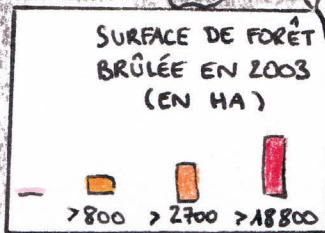 SURFACE DE FORÊT
BRÛLÉE EN 2003
(EN HA)
>800 >2700 >18800